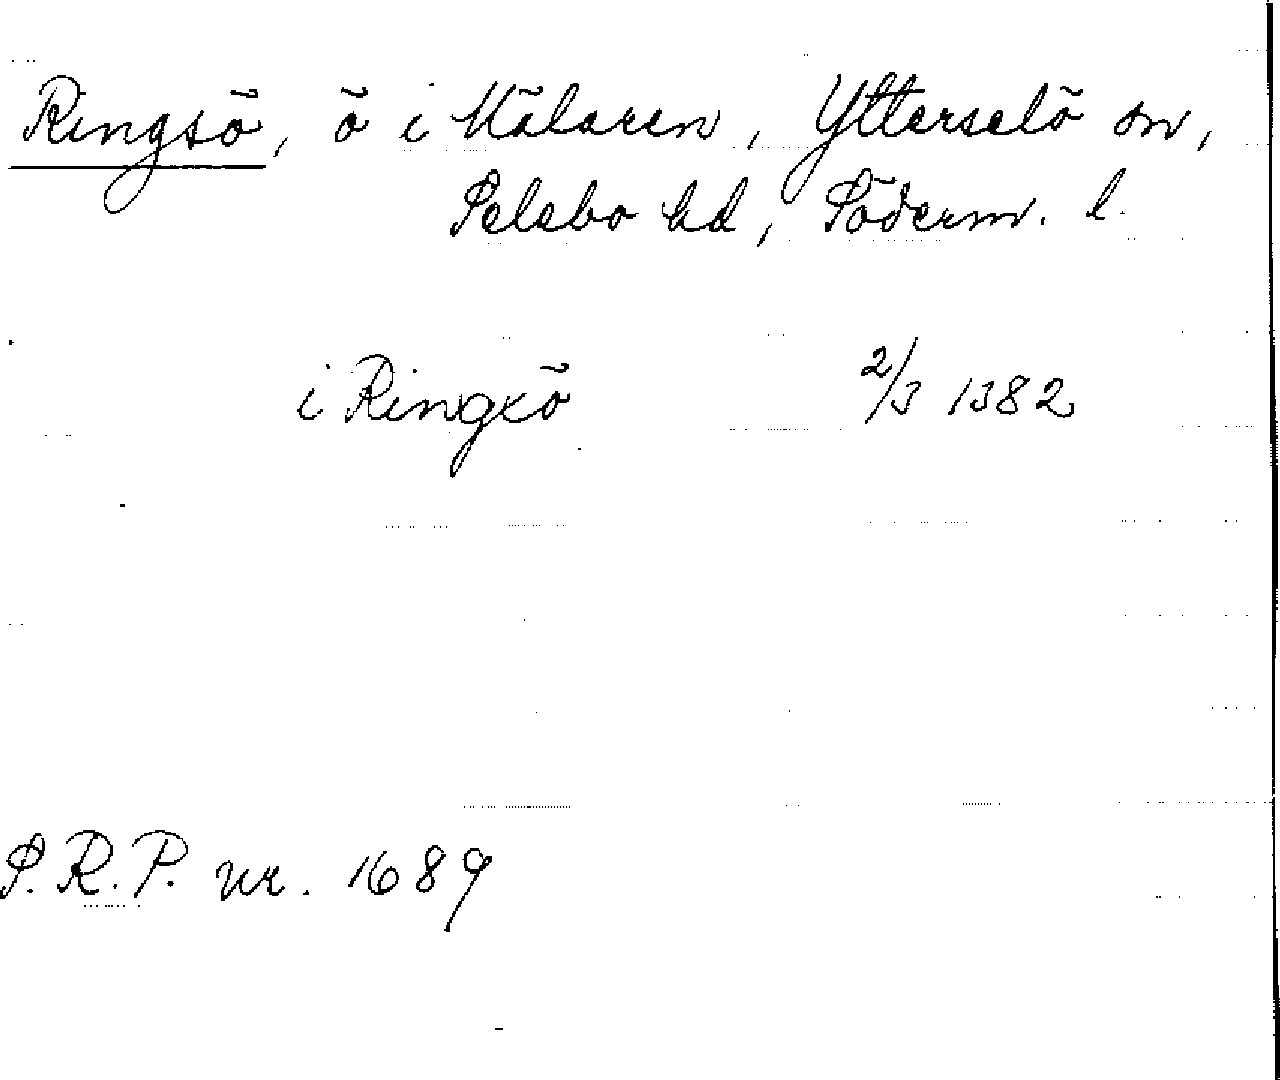 Ringsö, ö i Mälaren, Ytterselö sn,
Selebo hd, Söderm. l.
i Ringxö 2/3 1382
S.R.P. nr. 1689